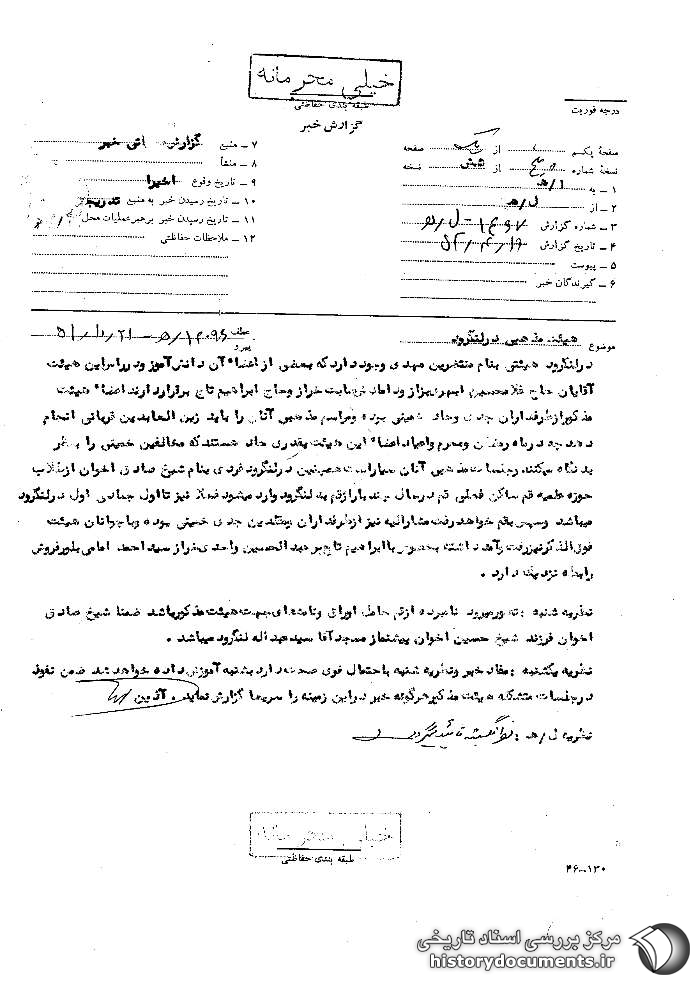 خیلی محرمانه
طبقه بندی حفاظتی
گزارش خبر
درجه فوریت
صفحهٔ یکم از یک صفحه
نسخهٔ شماره از شش نسخه
۱ – به ۱/ﻫ
۲ – از ل/ﻫ
۳ – شماره گزارش
۴ – تاریخ گزارش
۵ – پیوست
۶ – گیرندگان خبر
۷ – منبع گزارش
۸ – منشأ
۹ – تاریخ وقوع اخیرا
۱۰ – تاریخ رسیدن خبر به منبع تدریجا
۱۱ – تاریخ رسیدن خبر برهبر عملیات محل
۱۲ – ملاحظات حفاظتی
موضوع هیئت مذهبی در لنگرود
عطف
پیرو
در لنگرود هیئتی بنام منتظرین مهدی وجود دارد که بعضی از اعضاء آن دانش آموز و در راس این هیئت
آقایان حاج غلامحسین بزاز و داماد خراز و حاج ابراهیم تاج برقرار دارند اعضاء هیئت
مذکور از طرفداران جدی وحاد خمینی بوده و مراسم مذهبی آنان را باید زین العابدین قربانی انجام
دهد چه در ماه رمضان ومحرم واعیاد اعضاء این هیئت بقدری حاد هستند که مخالفین خمینی را بنظر
بد نگاه میکنند وجلسات مذهبی آنان سیار است همچنین در لنگرود فردی بنام شیخ صادق اخوان از طلاب
حوزه علمیه قم ساکن فعلی قم در سال چند بار از قم به لنگرود وارد میشود فعلا نیز تا اول جمادی اول در لنگرود
میباشد وسپس بقم خواهد رفت مشارالیه نیز از طرفداران ومقلدین جدی خمینی بوده و با جوانان هیئت
فوق الذکر نیز رفت وآمد داشته بخصوص با ابراهیم تاج بر عبدالحسین واحدی خراز سید احمد امامی بلور فروش
رابطه نزدیک دارد .
نظریه شنبه : تصور میرود نامبرده از قم حامل اوراق ونامه های جهت هیئت مذکور باشد ضمنا شیخ صادق
اخوان فرزند شیخ حسین اخوان پیشنماز مسجد آقا سید عبداله لنگرود میباشد .
نظریه یکشنبه : مفاد خبر ونظریه شنبه باحتمال قوی صحت دارد بشنبه آموزش داده خواهد شد ضمن نفوذ
در جلسات متشکله هیئت مذکور هرگونه خبر در این زمینه را سریعا گزارش نماید . آذین
نظریه ل/ﻫ : نظر یکشنبه تأیید میگردد
خیلی محرمانه
طبقه بندی حفاظتی
۴۶-۰۱۳۰
مرکز بررسی اسناد تاریخی
historydocuments.ir